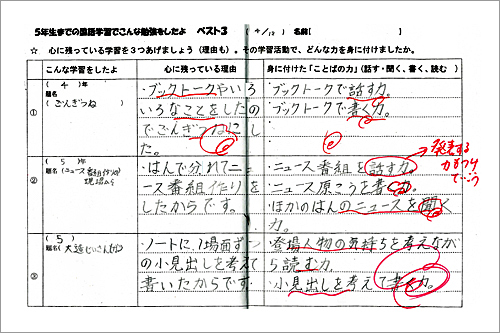 5年生までの国語学習でこんな勉強をしたよ ベスト3 (4/12) 名前[ ]
☆ 心に残っている学習を3つあげましょう(理由も)。その学習活動で、どんな力を身に付けましたか。
こんな学習をしたよ 心に残っている理由 身に付けた「ことばの力」(話す・聞く、書く、読む)
①
(4)年
題名
(ごんぎつね)
・ブックトークやいろ
いろなことをしたの
でごんぎつねにし
た。
・ブックトークで話す力。
・ブックトークで書く力。
②
(5)年
題名(ニュース番組作りの
現場から
・はんで分れてニュ
ース番組作りを
したからです。
・ニュース番組を話す力。
・ニュース原こうを書く力。
・ほかのはんのニュースを聞く
力。
発表する
力もつけ
③
(5)
題名(大造じいさんとガン)
・ノートに、1場面ずつ
の小見出しを考えて
書いたからです。
・登場人物の気持ちを考えなが
ら読む力。
・小見出しを考えて書く力。